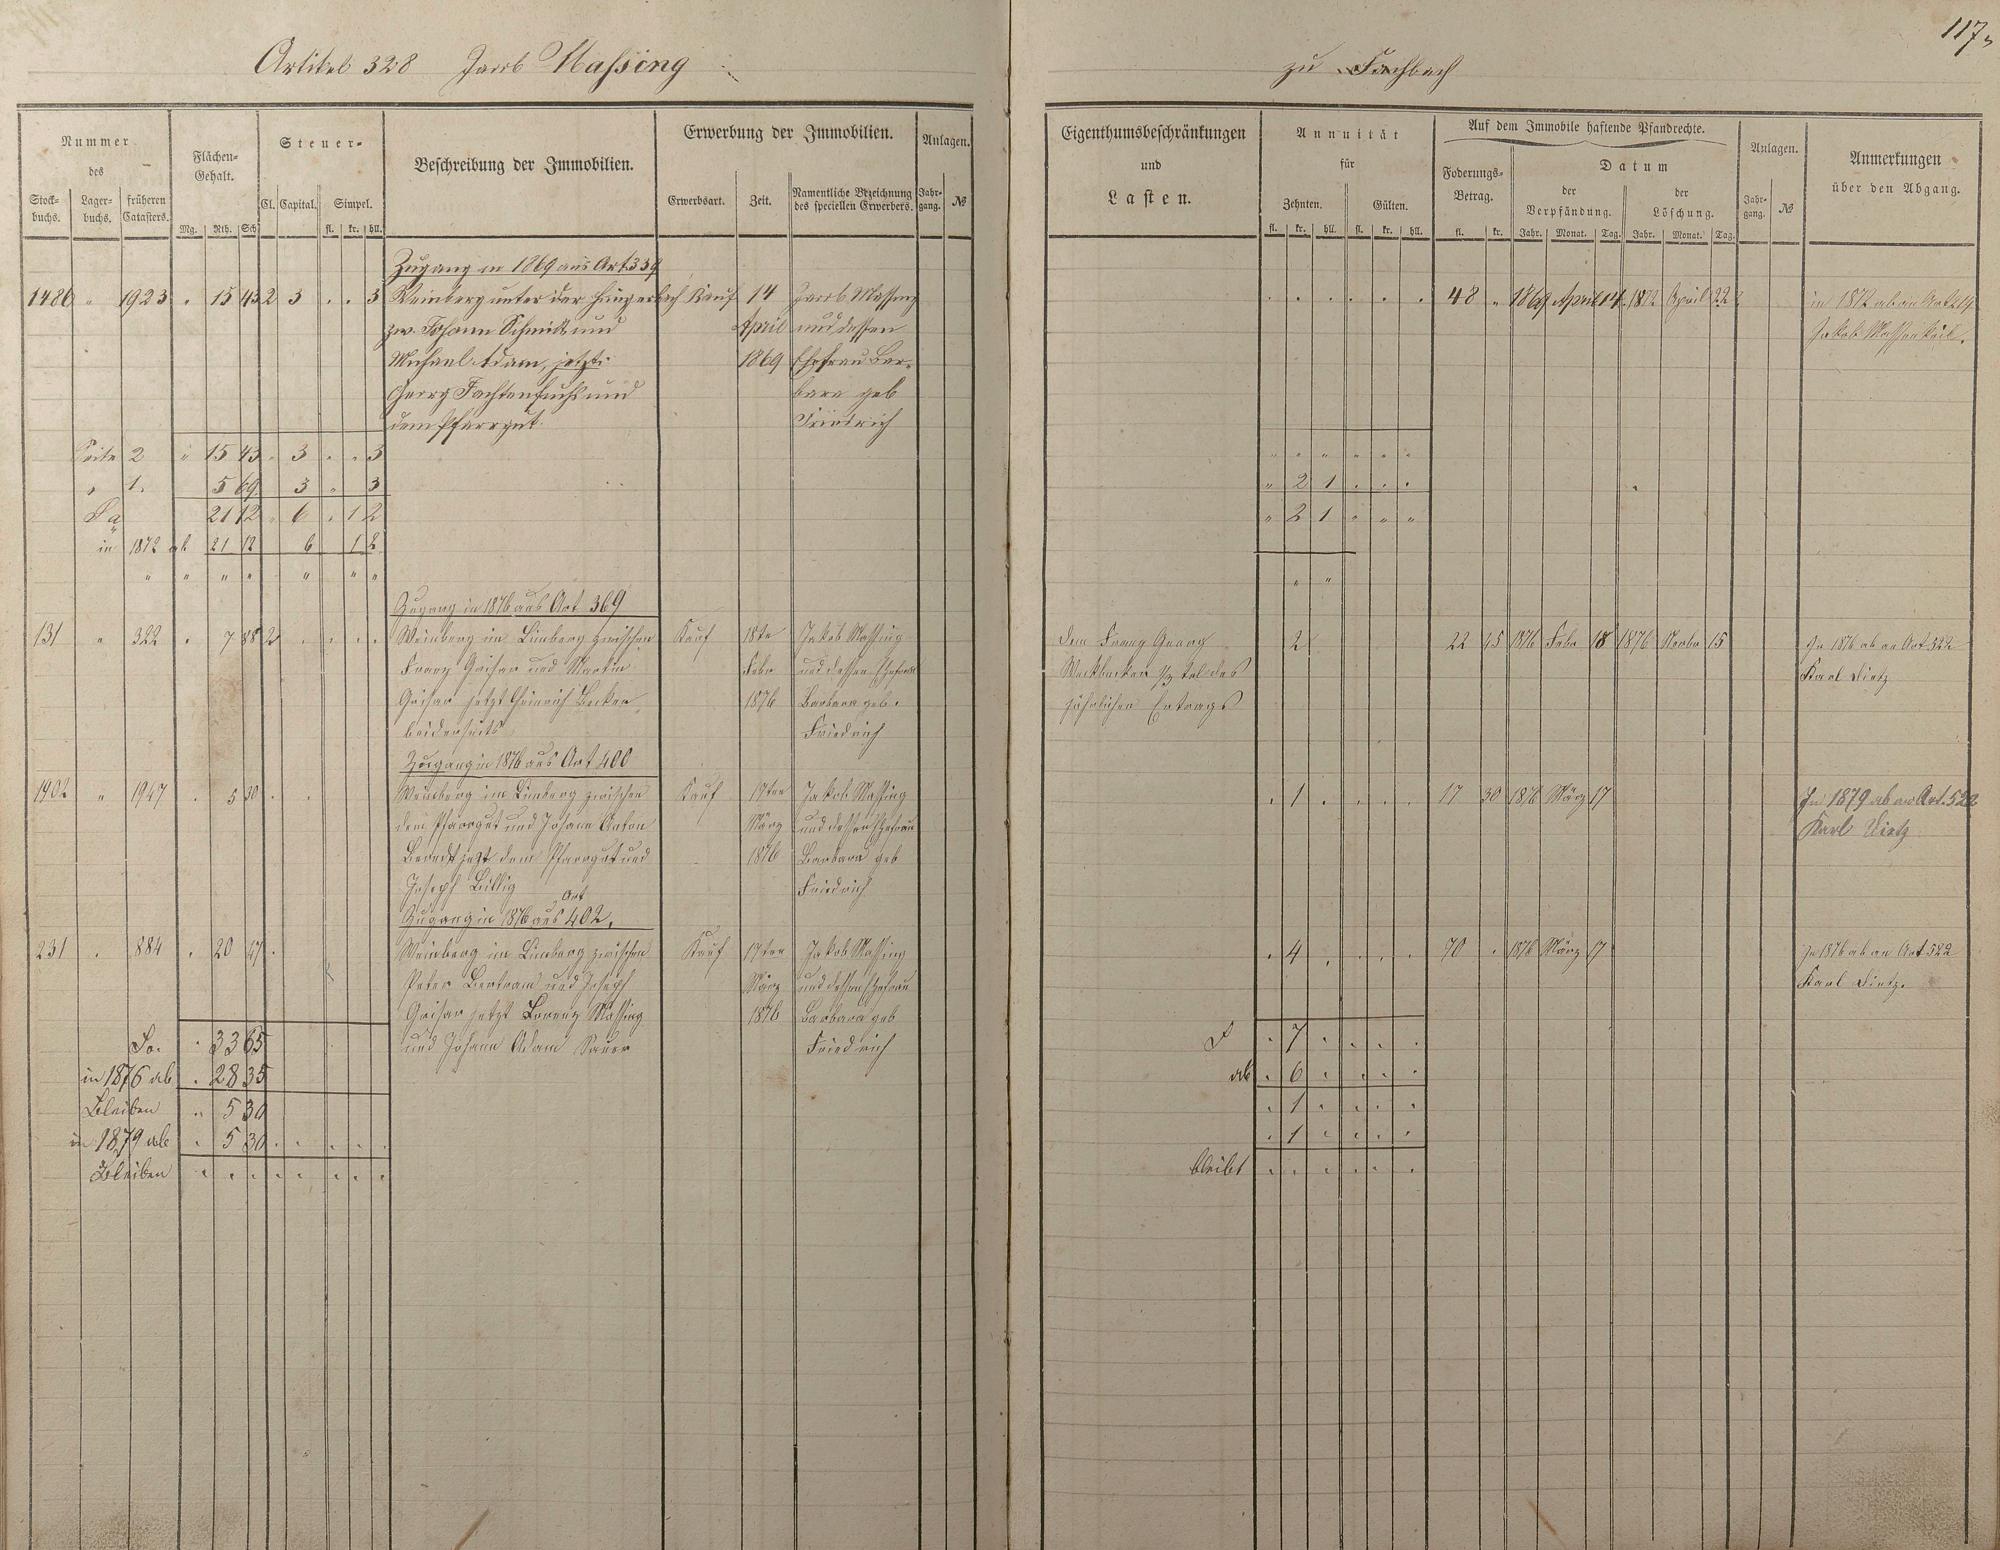 117
Artikel 328 Jacob Massing
zu Fachbach
Nummer
des
Stock-
buchs.
Lager-
buchs.
früheren
Catasters.
Flächen-
Gehalt.
Mg. Rth. Sch
Steuer-
Cl. Capital. Simpel.
fl. kr. hll.
Beschreibung der Immobilien.
Erwerbung der Immobilien.
Erwerbsart. Zeit. Namentliche Bezeichnung
des speciellen Erwerbers.
Anlagen.
Jahr-
gang. №
Eigenthumsbeschränkungen
und
Lasten.
Annuität
für
Zehnten. Gülten.
fl. kr. hll. fl. kr. hll.
Auf dem Immobile haftende Pfandrechte.
Foderungs-
Betrag.
fl. kr.
Datum
der
Verpfändung.
der
Löschung.
Jahr. Monat. Tag. Jahr. Monat. Tag.
Anlagen.
Jahr-
gang. №
Anmerkungen
über den Abgang.
Zugang in 1869 aus Art 339
1486 " 1923 . 15 43 2 3 . . 3 Weinberg unter der Hungerbach Kauf 14 Jacob Massing
zw. Johann Schmidt und April und dessen
Michael Adam, jetzt: 1869 Ehefrau Bar-
Georg Fachtenfuchs und bara geb
dem Pfarrgut. Friedrich
48 " 1869 April 14 1872 April 22 in 1872 ab an Art 214
Jakob Massenkeil.
Seite 2 " 15 43 . 3 . . 3
" 1. 5 69 3 " 3
Sa 21 12 " 6 . 1 2
in 1872 ab 21 12 6 1 2
" " " " " " "
" " " " " "
" 2 1 . . .
" 2 1 " " "
" "
Zugang in 1876 aus Art 369
131 " 322 . 7 88 2 . . . . Weinberg im Limberg zwischen Kauf 18te Jakob Massing
Franz Geisar und Martin Febr und dessen Ehefrau
Geisar jetzt Heinrich Becker 1876 Barbara geb.
beiderseits Friedrich
dem Franz Georg 2 22 45 1876 Febr 18 1876 Novbr 15 In 1876 ab an Art 522
Weckbecker 1/3 tel des Karl Dietz
jährlichen Ertrags
Zugang in 1876 aus Art 400
1902 " 1947 . 5 30 . . Weinberg im Limberg zwischen Kauf 17ten Jakob Massing
dem Pfarrgut und Johann Anton März und dessen Ehefrau
jetzt dem Pfarrgut und 1876 Barbara geb
Joseph Billig Friedrich
. 1 . . . . 17 30 1876 März 17 In 1879 ab an Art. 522
Karl Dietz
Zugang in 1876 aus Art 402.
231 . 884 . 20 47 . Weinberg im Limberg zwischen Kauf 17ten Jakob Massing
Peter Bertram und Joseph März und dessen Ehefrau
Geisar jetzt Lorenz Massing 1876 Barbara geb
und Johann Adam Sauer Friedrich
. 4 . . . . 70 . 1876 März 17 In 1876 ab an Art 522
Karl Dietz.
Sa. . 33 65
in 1876 ab . 28 35
Bleiben " 5 30
in 1879 ab . 5 30 . . . . .
Bleiben . . . . . . . .
. 7 . . . .
ab . 6 . . . .
. 1 . . . .
. 1 . . . .
bleibt . . . . . .